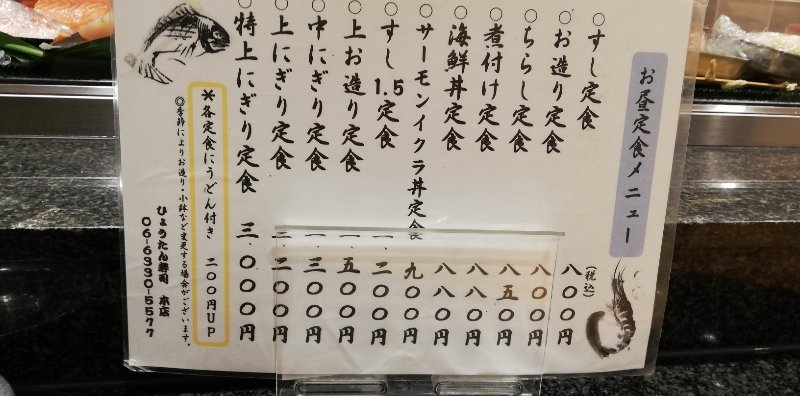 お昼定食メニュー
(税込)
○すし定食 八〇〇円
○お造り定食 八〇〇円
○ちらし定食 八五〇円
○煮付け定食 八八〇円
○海鮮丼定食 八八〇円
○サーモンイクラ丼定食 九〇〇円
○すし1.5定食 一、二〇〇円
○上お造り定食 一、五〇〇円
○中にぎり定食 一、三〇〇円
○上にぎり定食 二、二〇〇円
○特上にぎり定食 三、〇〇〇円
※各定食にうどん付き 二〇〇円UP
◎季節によりお造り・小鉢など変更する場合がございます。
ひょうたん寿司 本店
06-6330-5577